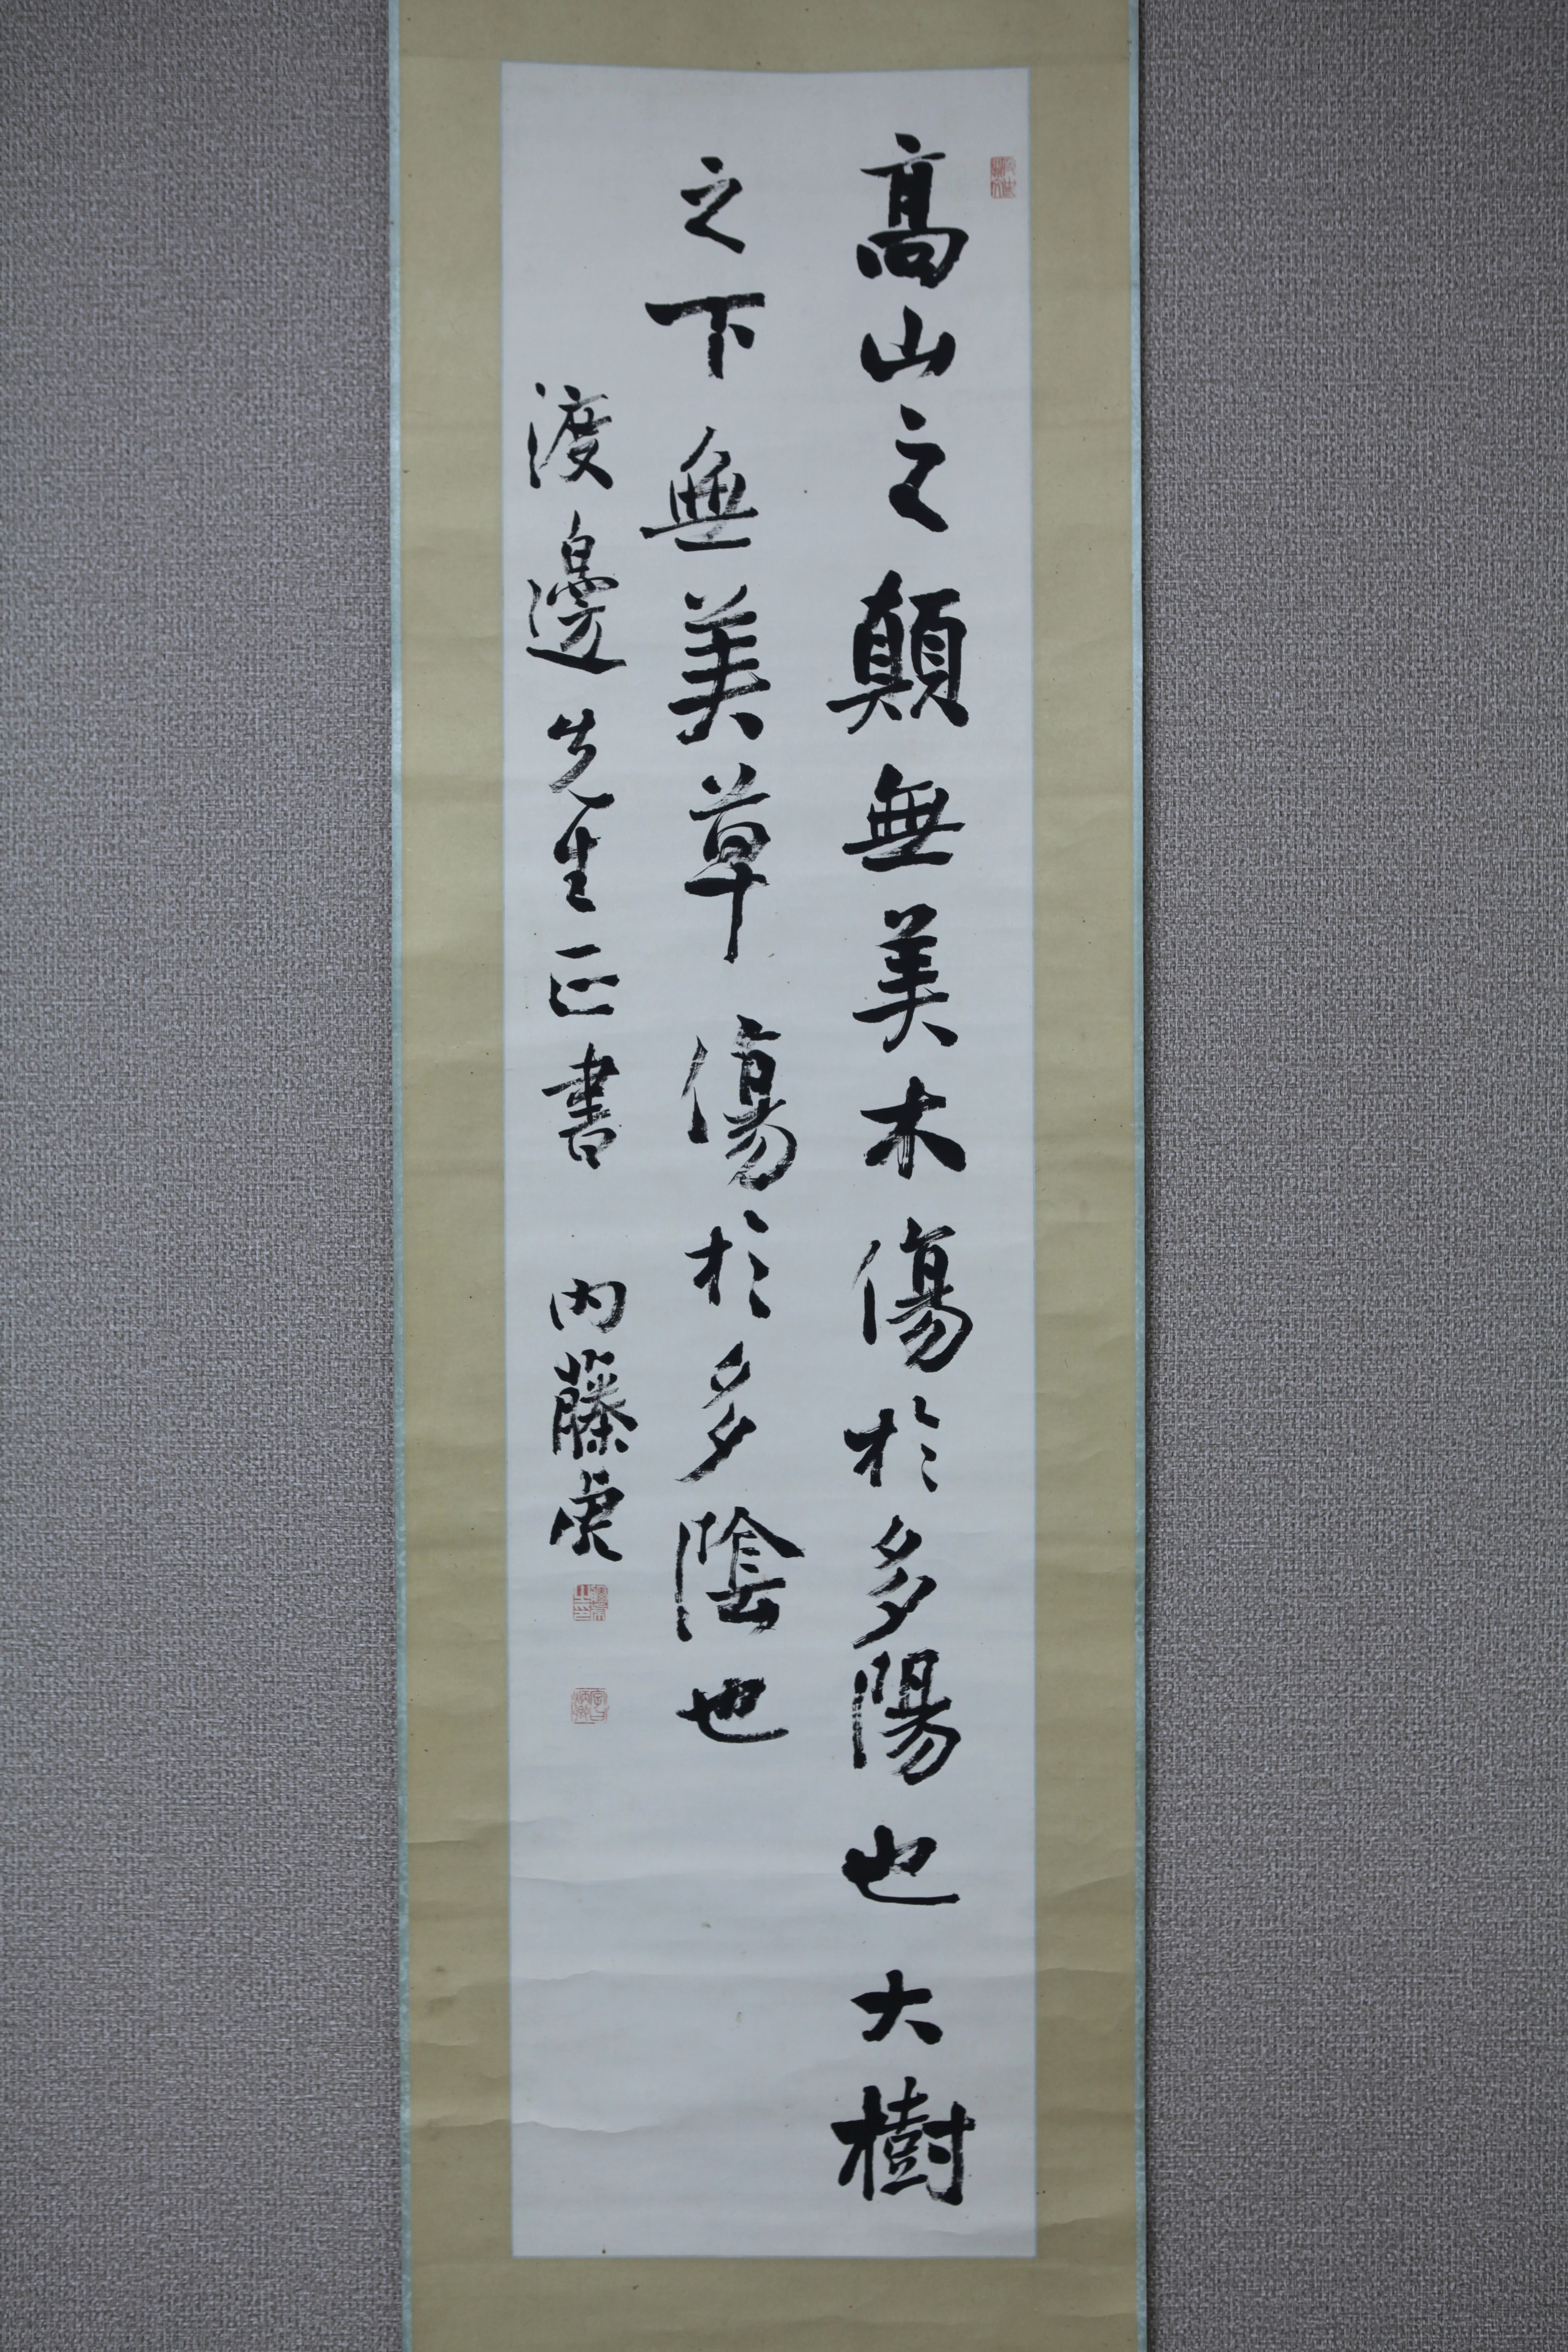 高山之顛無美木傷於多陽也大樹
之下無美草傷於多陰也
渡邊先生正書 内藤虎